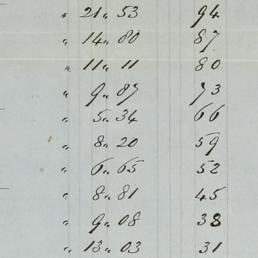 " 21.53 94
" 14.80 87
" 11.11 80
" 9.87 73
" 5.34 66
" 8.20 59
" 6.65 52
" 8.81 45
" 9.08 38
" 13.03 31